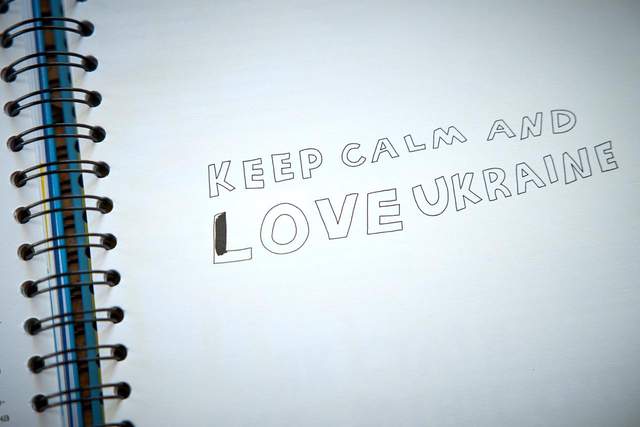 KEEP CALM AND
LOVE UKRAINE